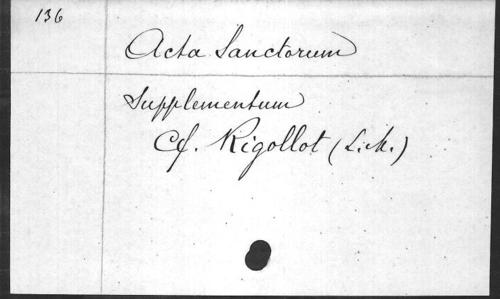 136
Acta Sanctorum
Supplementum
Cf. Rigollot (L.M.)